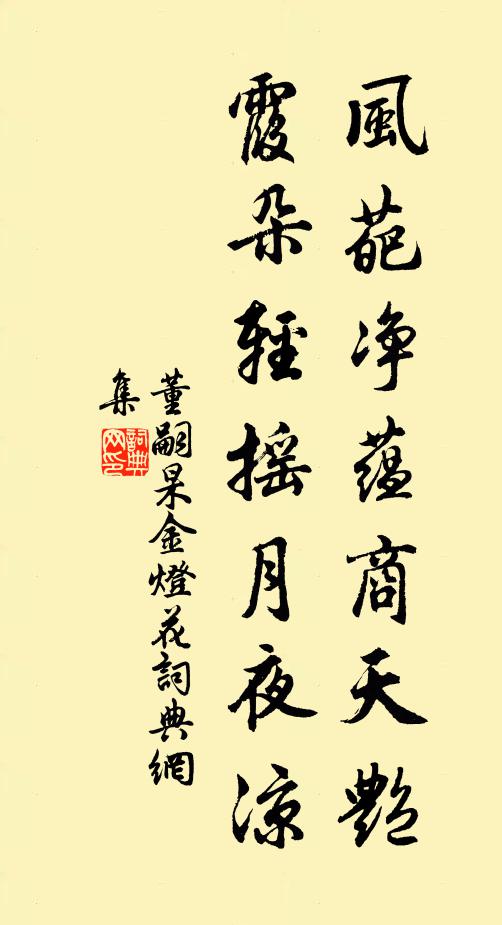 風葩净蕴商天艷
霞朵輕摇月夜涼
董嗣杲金燈花詞典網
集
詞典
网印